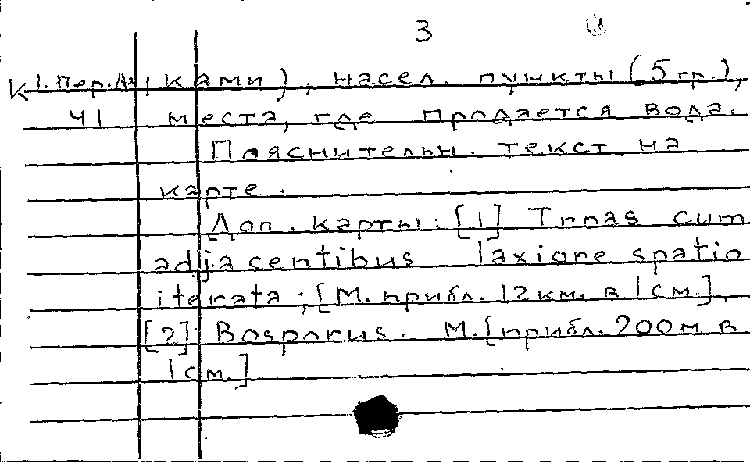 3
К 1. Пер. Аз. ками), насел. пункты (5 гр.),
41 места, где продается вода.
Пояснительн. текст на
карте.
Доп. карты: [1] Tnnas cum
adjacentibus laxione spatio
iterata; [М. прибл. 12 км. в 1 см.],
[2] Bosporus. М. [прибл. 200 м в
1 см.]